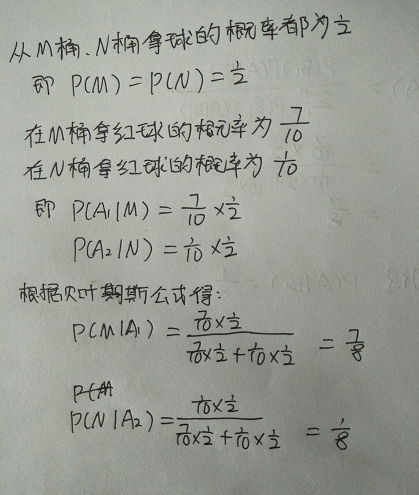 从M桶、N桶拿球的概率都为1/2
即 P(M) = P(N) = 1/2
在M桶拿红球的概率为 7/10
在N桶拿红球的概率为 1/10
即 P(A₁|M) = 7/10 × 1/2
P(A₂|N) = 1/10 × 1/2
根据贝叶斯公式得:
P(M|A₁) = (7/10 × 1/2) / (7/10 × 1/2 + 1/10 × 1/2) = 7/8
P(N|A₂) = (1/10 × 1/2) / (7/10 × 1/2 + 1/10 × 1/2) = 1/8